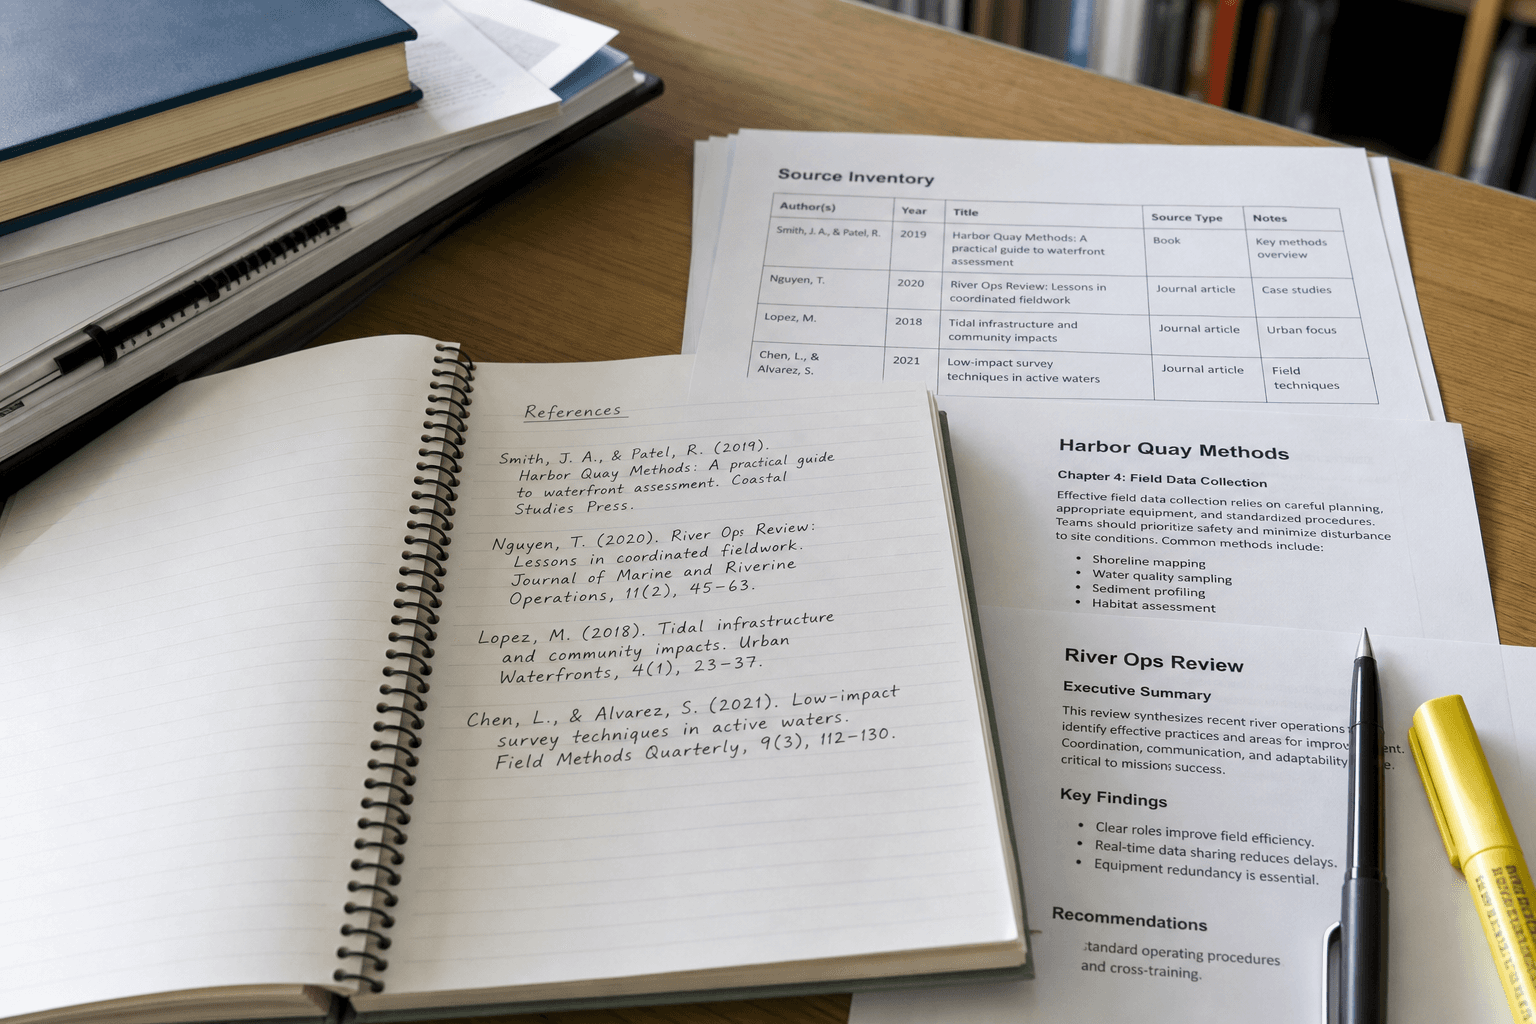 Source Inventory
Author(s) Year Title Source Type Notes
Smith, J. A., & Patel, R. 2019 Harbor Quay Methods: A Book Key methods
practical guide to waterfront overview
assessment
Nguyen, T. 2020 River Ops Review: Lessons in Journal article Case studies
coordinated fieldwork
Lopez, M. 2018 Tidal infrastructure and Journal article Urban focus
community impacts
Chen, L., & 2021 Low-impact survey Journal article Field
Alvarez, S. techniques in active waters techniques
References
Smith, J. A., & Patel, R. (2019).
Harbor Quay Methods: A practical guide
to waterfront assessment. Coastal
Studies Press.
Nguyen, T. (2020). River Ops Review:
Lessons in coordinated fieldwork.
Journal of Marine and Riverine
Operations, 11(2), 45–63.
Lopez, M. (2018). Tidal infrastructure
and community impacts. Urban
Waterfronts, 4(1), 23–37.
Chen, L., & Alvarez, S. (2021). Low-impact
survey techniques in active waters.
Field Methods Quarterly, 9(3), 112–130.
Harbor Quay Methods
Chapter 4: Field Data Collection
Effective field data collection relies on careful planning,
appropriate equipment, and standardized procedures.
Teams should prioritize safety and minimize disturbance
to site conditions. Common methods include:
• Shoreline mapping
• Water quality sampling
• Sediment profiling
• Habitat assessment
River Ops Review
Executive Summary
This review synthesizes recent river operations
identify effective practices and areas for
Coordination, communication, and adaptability
critical to mission success.
Key Findings
• Clear roles improve field efficiency.
• Real-time data sharing reduces delays.
• Equipment redundancy is essential.
Recommendations
operating procedures
and cross-training.